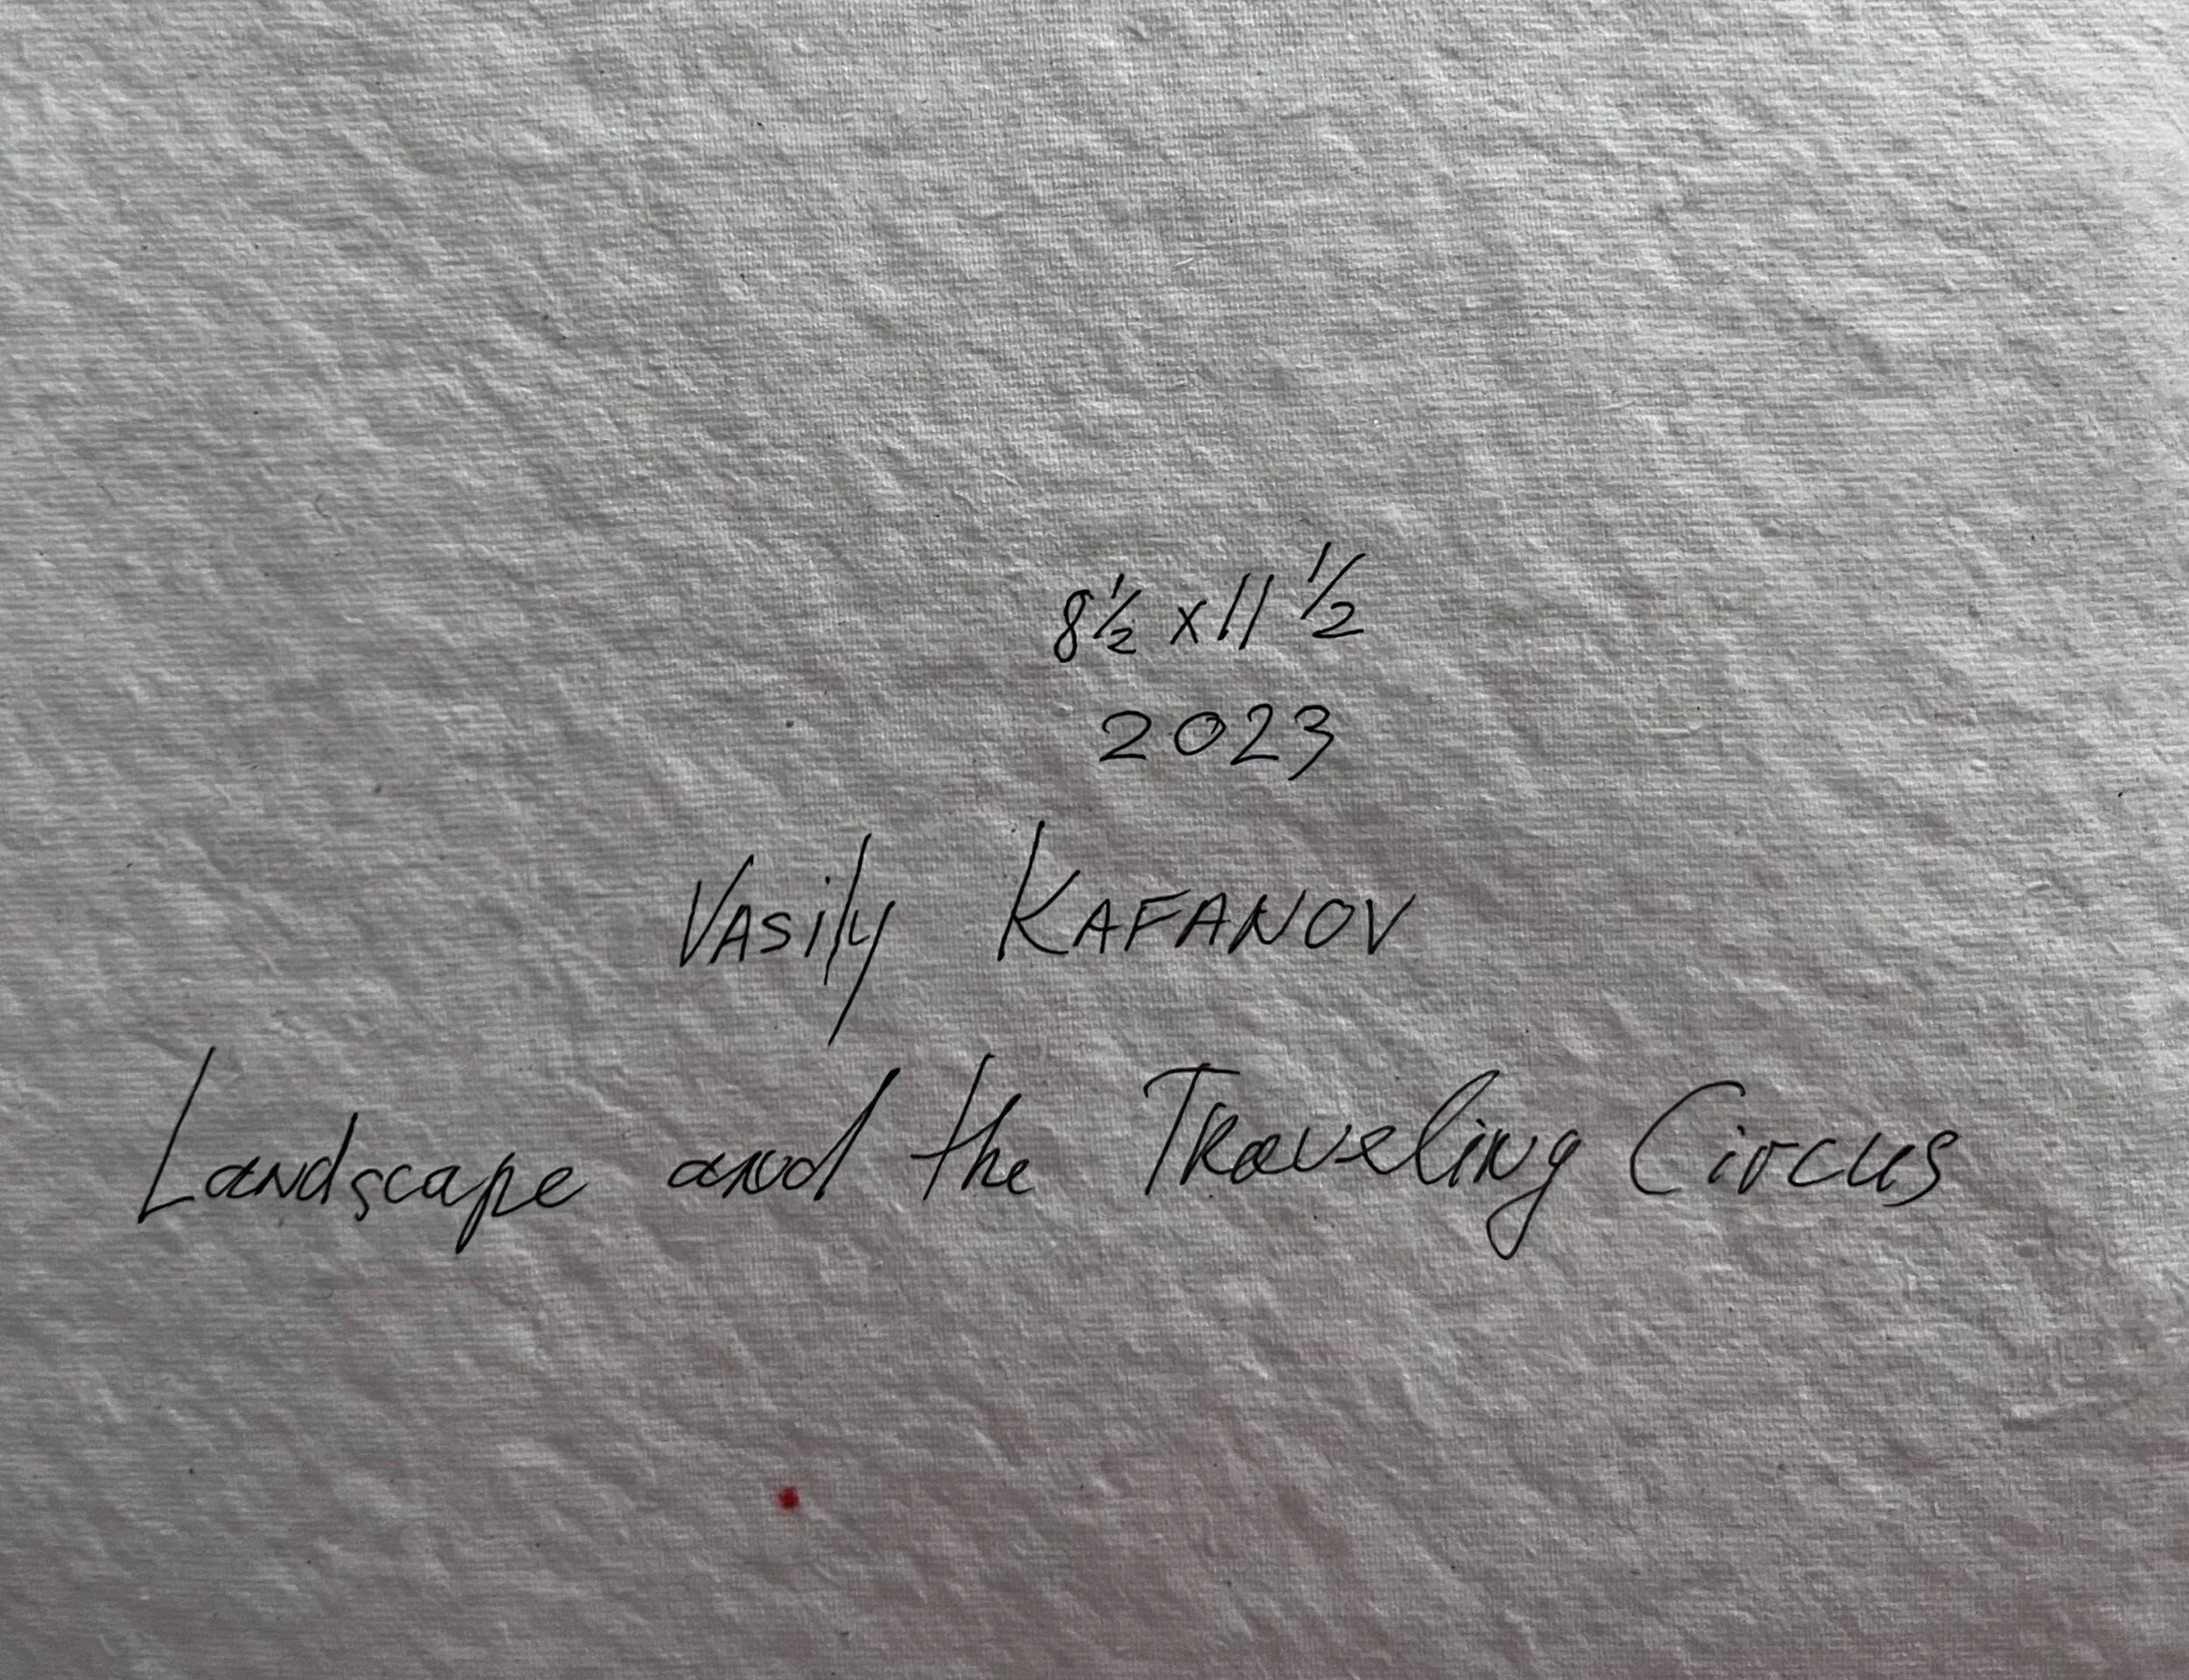 8½ x 11 ½
2023
Vasily KAFANOV
Landscape and the Traveling Circus